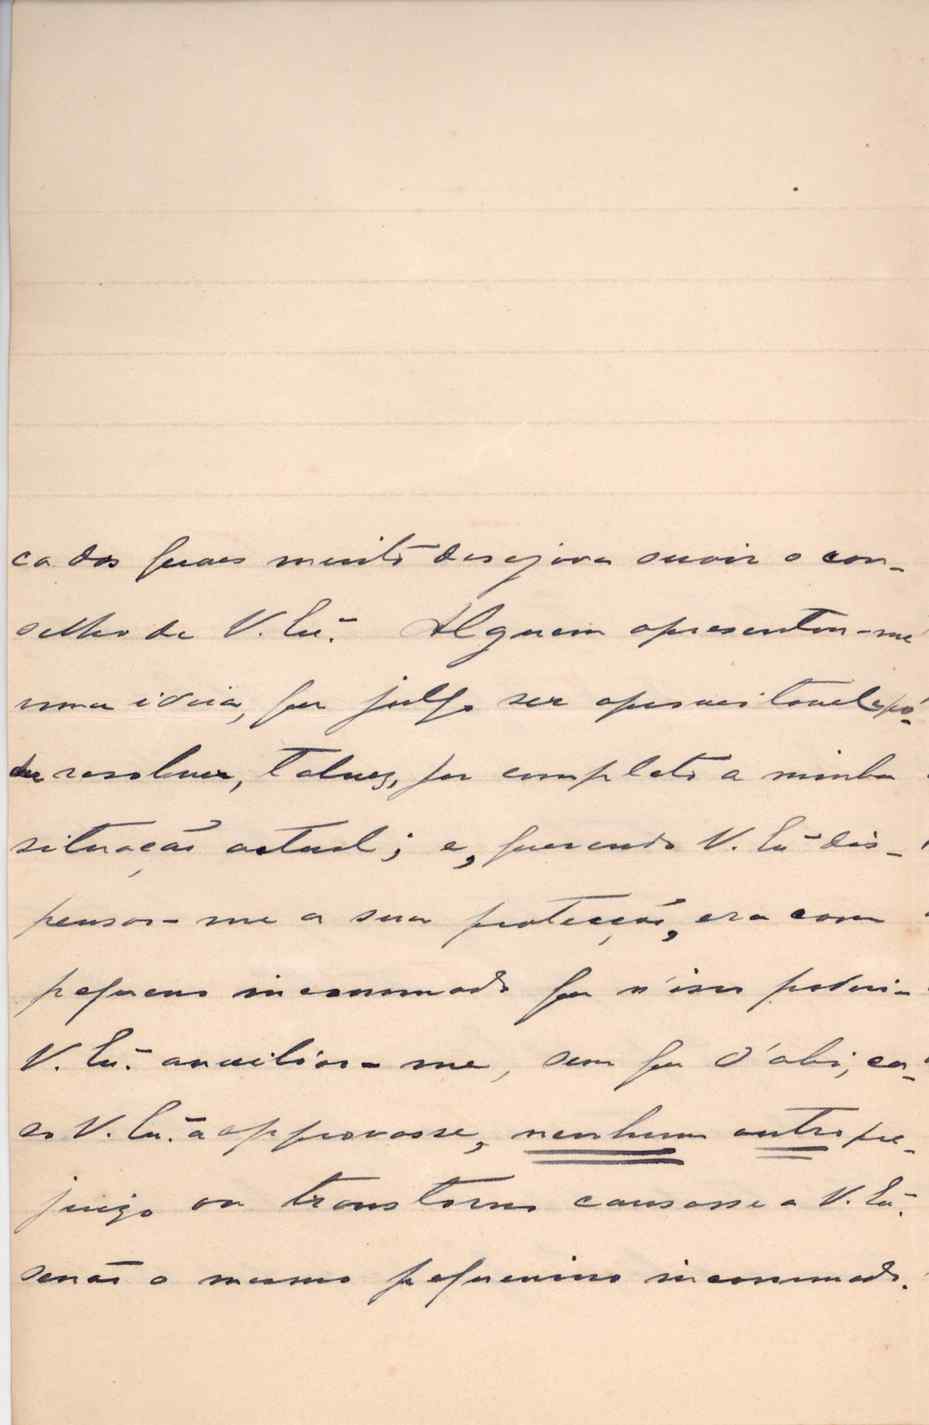 ca dos quaes muito desejava ouvir o con-
selho de V. Exª. Alguem apresentou-me
uma ideia, que julgo ser aproveitavel e pó-
de resolver, talvez, por completo a minha
situação actual; e, querendo V. Exª dis-
pensar-me a sua protecção, era com
pequeno incommodo que n'isso poderia
V. Exª. auxiliar-me, sem que d'ahi, ca-
so V. Exª. a approvasse, nenhum outro pre-
juizo ou transtorno causasse a V. Exª.
senão o mesmo pequenino incommodo.